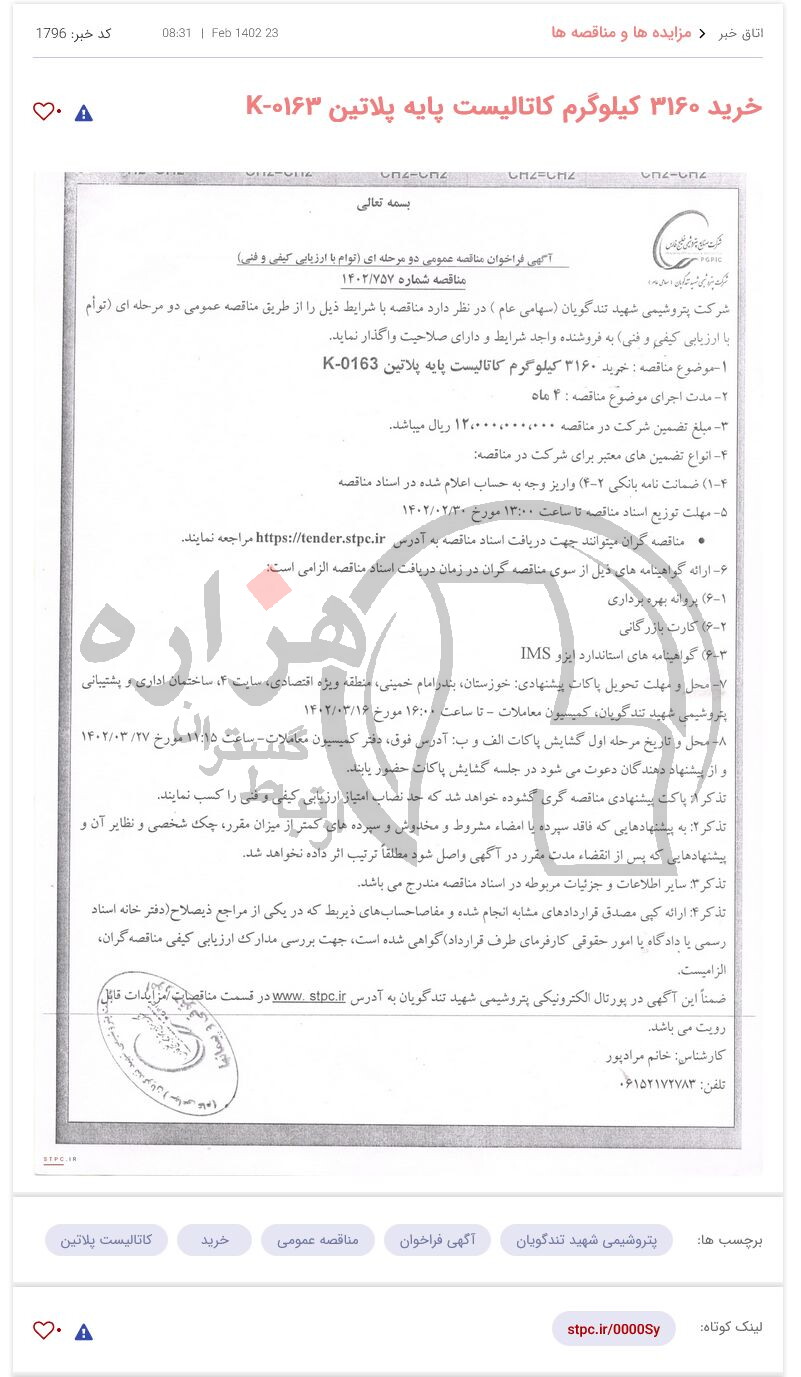 اتاق خبر › مزایده ها و مناقصه ها
23 Feb 1402 | 08:31
کد خبر: 1796
خرید ۳۱۶۰ کیلوگرم کاتالیست پایه پلاتین K-۰۱۶۳
۰
CH2=CH2 CH2=CH2 CH2=CH2 CH2=CH2
بسمه تعالی
شرکت صنایع پتروشیمی خلیج فارس
PGPIC
شرکت پتروشیمی شهید تندگویان (سهامی عام)
آگهی فراخوان مناقصه عمومی دو مرحله ای (توام با ارزیابی کیفی و فنی)
مناقصه شماره ۱۴۰۲/۷۵۷
شرکت پتروشیمی شهید تندگویان (سهامی عام ) در نظر دارد مناقصه با شرایط ذیل را از طریق مناقصه عمومی دو مرحله ای (توأم
با ارزیابی کیفی و فنی) به فروشنده واجد شرایط و دارای صلاحیت واگذار نماید.
۱-موضوع مناقصه : خرید ۳۱۶۰ کیلوگرم کاتالیست پایه پلاتین K-0163
۲- مدت اجرای موضوع مناقصه : ۴ ماه
۳- مبلغ تضمین شرکت در مناقصه ۱۲،۰۰۰،۰۰۰،۰۰۰ ریال میباشد.
۴- انواع تضمین های معتبر برای شرکت در مناقصه:
۴-۱) ضمانت نامه بانکی ۴-۲) واریز وجه به حساب اعلام شده در اسناد مناقصه
۵- مهلت توزیع اسناد مناقصه تا ساعت ۱۳:۰۰ مورخ ۱۴۰۲/۰۲/۳۰
• مناقصه گران میتوانند جهت دریافت اسناد مناقصه به آدرس https://tender.stpc.ir مراجعه نمایند.
۶- ارائه گواهینامه های ذیل از سوی مناقصه گران در زمان دریافت اسناد مناقصه الزامی است:
۶-۱) پروانه بهره برداری
۶-۲) کارت بازرگانی
۶-۳) گواهینامه های استاندارد ایزو IMS
۷- محل و مهلت تحویل پاکات پیشنهادی: خوزستان، بندرامام خمینی، منطقه ویژه اقتصادی، سایت ۴، ساختمان اداری و پشتیبانی
پتروشیمی شهید تندگویان، کمیسیون معاملات – تا ساعت ۱۶:۰۰ مورخ ۱۴۰۲/۰۳/۱۶
۸- محل و تاریخ مرحله اول گشایش پاکات الف و ب: آدرس فوق، دفتر کمیسیون معاملات- ساعت ۱۱:۱۵ مورخ ۲۷/ ۱۴۰۲/۰۳
و از پیشنهاد دهندگان دعوت می شود در جلسه گشایش پاکات حضور یابند.
تذکر۱: پاکت پیشنهادی مناقصه گری گشوده خواهد شد که حد نصاب امتیاز ارزیابی کیفی و فنی را کسب نمایند.
تذکر۲: به پیشنهادهایی که فاقد سپرده یا امضاء مشروط و مخدوش و سپرده های کمتر از میزان مقرر، چک شخصی و نظایر آن و
پیشنهادهایی که پس از انقضاء مدت مقرر در آگهی واصل شود مطلقاً ترتیب اثر داده نخواهد شد.
تذکر۳: سایر اطلاعات و جزئیات مربوطه در اسناد مناقصه مندرج می باشد.
تذکر۴: ارائه کپی مصدق قراردادهای مشابه انجام شده و مفاصاحساب‌های ذیربط که در یکی از مراجع ذیصلاح(دفتر خانه اسناد
رسمی یا دادگاه یا امور حقوقی کارفرمای طرف قرارداد)گواهی شده است، جهت بررسی مدارک ارزیابی کیفی مناقصه گران،
الزامیست.
ضمناً این آگهی در پورتال الکترونیکی پتروشیمی شهید تندگویان به آدرس www. stpc.ir در قسمت مناقصات/مزایدات قابل
رویت می باشد.
کارشناس: خانم مرادپور
تلفن: ۰۶۱۵۲۱۷۲۷۸۳
هزاره
گستران
ارتباط
STPC.IR
برچسب ها: پتروشیمی شهید تندگویان آگهی فراخوان مناقصه عمومی خرید کاتالیست پلاتین
لینک کوتاه: stpc.ir/0000Sy
۰